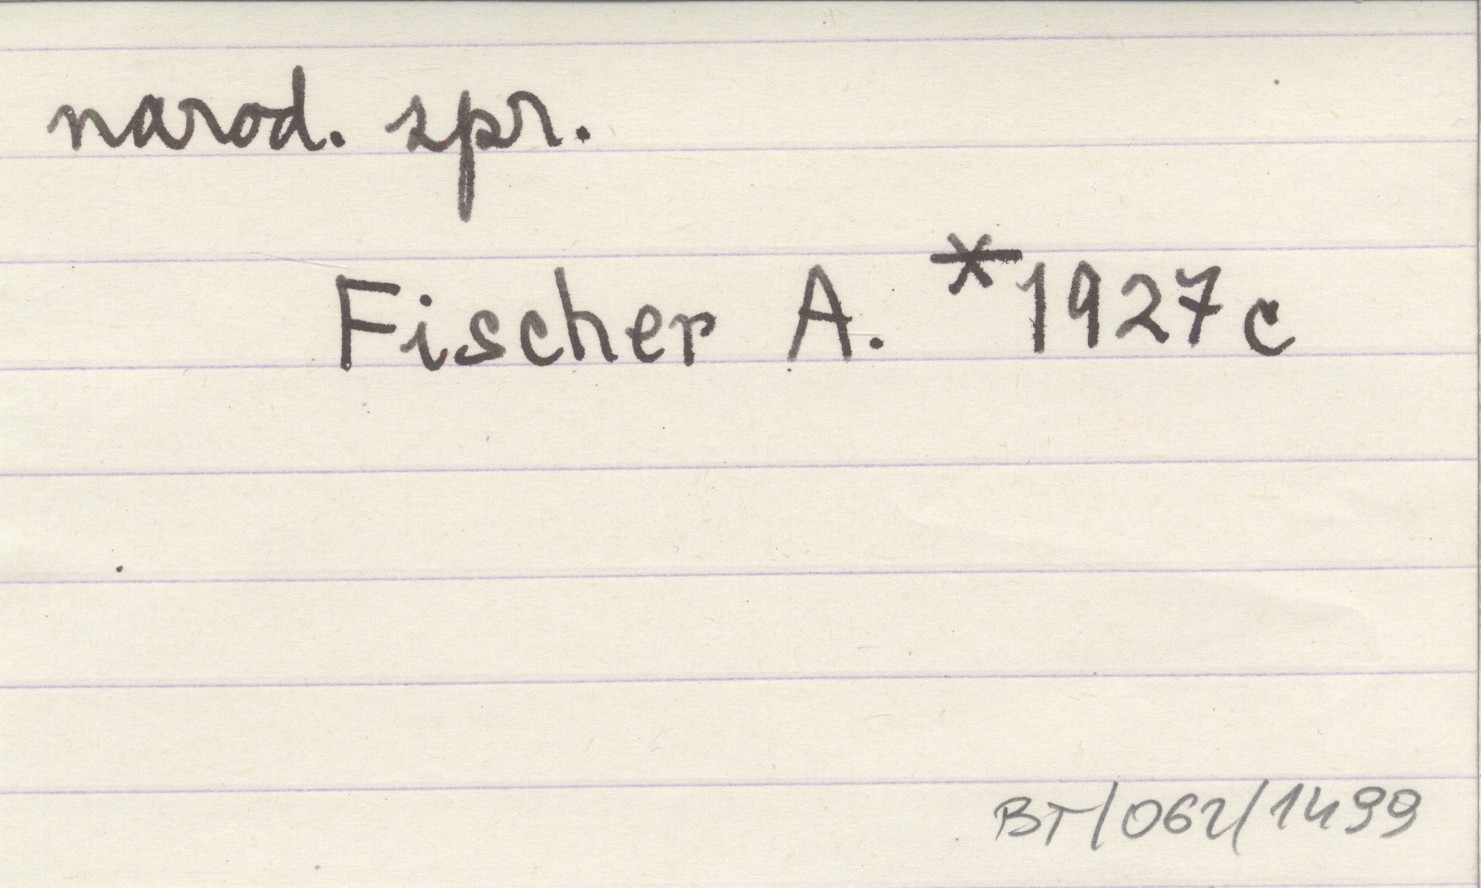 narod. spr.
Fischer A. *1927c
BT/062/1499